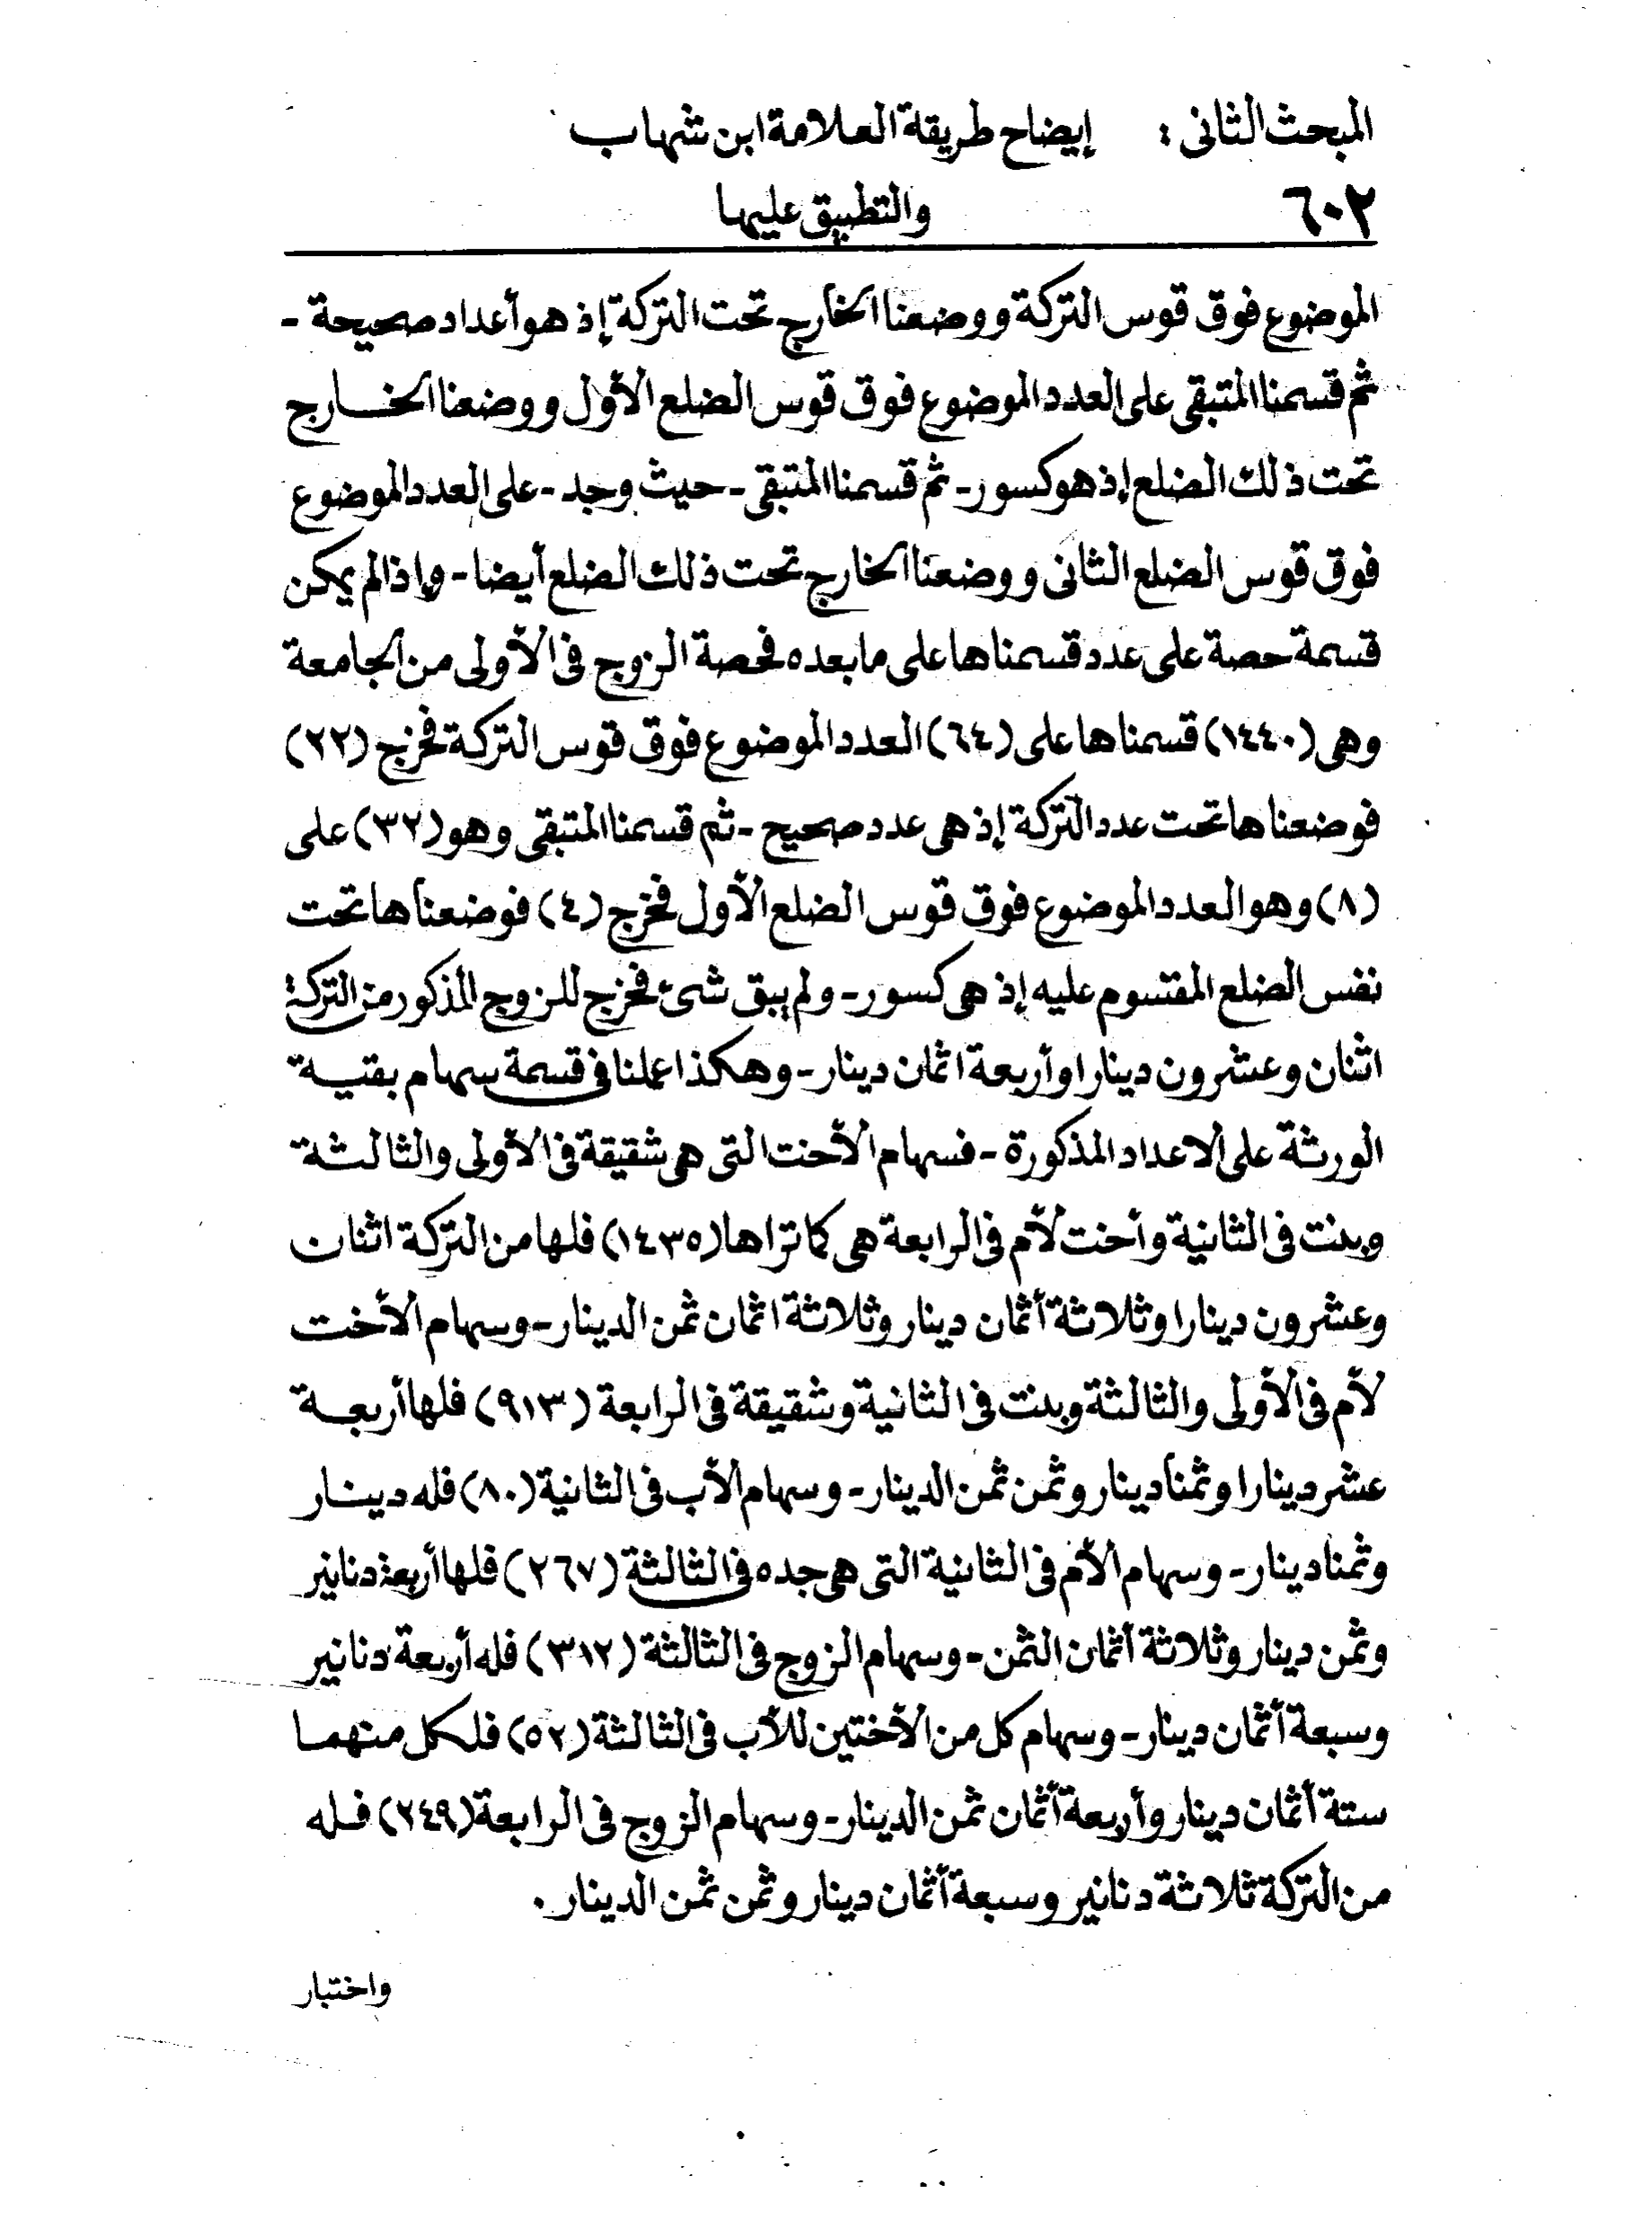 المبحث الثانى : إيضاح طريقة العلامة ابن شهاب
٦٠٢ والتطبيق عليها
الموضوع فوق قوس التركة ووضعنا الخارج تحت التركة إذ هو أعداد صحيحة -
ثم قسمنا المتبقى على العدد الموضوع فوق قوس الضلع الأول ووضعنا الخارج
تحت ذلك الضلع إذ هو كسور - ثم قسمنا المتبقى - حيث وجد - على العدد الموضوع
فوق قوس الضلع الثانى ووضعنا الخارج تحت ذلك الضلع أيضا - وإذا لم يمكن
قسمة حصة على عدد قسمناها على ما بعده فحصة الزوج فى الأولى من الجامعة
وهى (١٤٤٠) قسمناها على (٦٤) العدد الموضوع فوق قوس التركة فخرج (٢٢)
فوضعناها تحت عدد التركة إذ هى عدد صحيح - ثم قسمنا المتبقى وهو (٣٢) على
(٨) وهو العدد الموضوع فوق قوس الضلع الأول فخرج (٤) فوضعناها تحت
نفس الضلع المقسوم عليه إذ هى كسور - ولم يبق شئ فخرج للزوج المذكور من التركة
اثنان وعشرون دينارا وأربعة اثمان دينار - وهكذا عملنا فى قسمة سهام بقية
الورثة على الاعداد المذكورة - فسهام الأخت التى هى شقيقة فى الأولى والثالثة
وبنت فى الثانية وأخت لأم فى الرابعة هى كما تراها (١٤٣٥) فلها من التركة اثنان
وعشرون دينارا وثلاثة أثمان دينار وثلاثة اثمان ثمن الدينار - وسهام الأخت
لأم فى الأولى والثالثة وبنت فى الثانية وشقيقة فى الرابعة (٩١٣) فلها أربعة
عشر دينارا وثمنا دينار وثمن ثمن الدينار - وسهام الأب فى الثانية (٨٠) فله دينار
وثمنا دينار - وسهام الأم فى الثانية التى هى جده فى الثالثة (٢٦٧) فلها أربعة دنانير
وثمن دينار وثلاثة أثمان الثمن - وسهام الزوج فى الثالثة (٣١٢) فله أربعة دنانير
وسبعة أثمان دينار - وسهام كل من الأختين للأب فى الثالثة (٥٢) فلكل منهما
ستة أثمان دينار وأربعة أثمان ثمن الدينار - وسهام الزوج فى الرابعة (٢٤٩) فله
من التركة ثلاثة دنانير وسبعة أثمان دينار وثمن ثمن الدينار .
واختبار